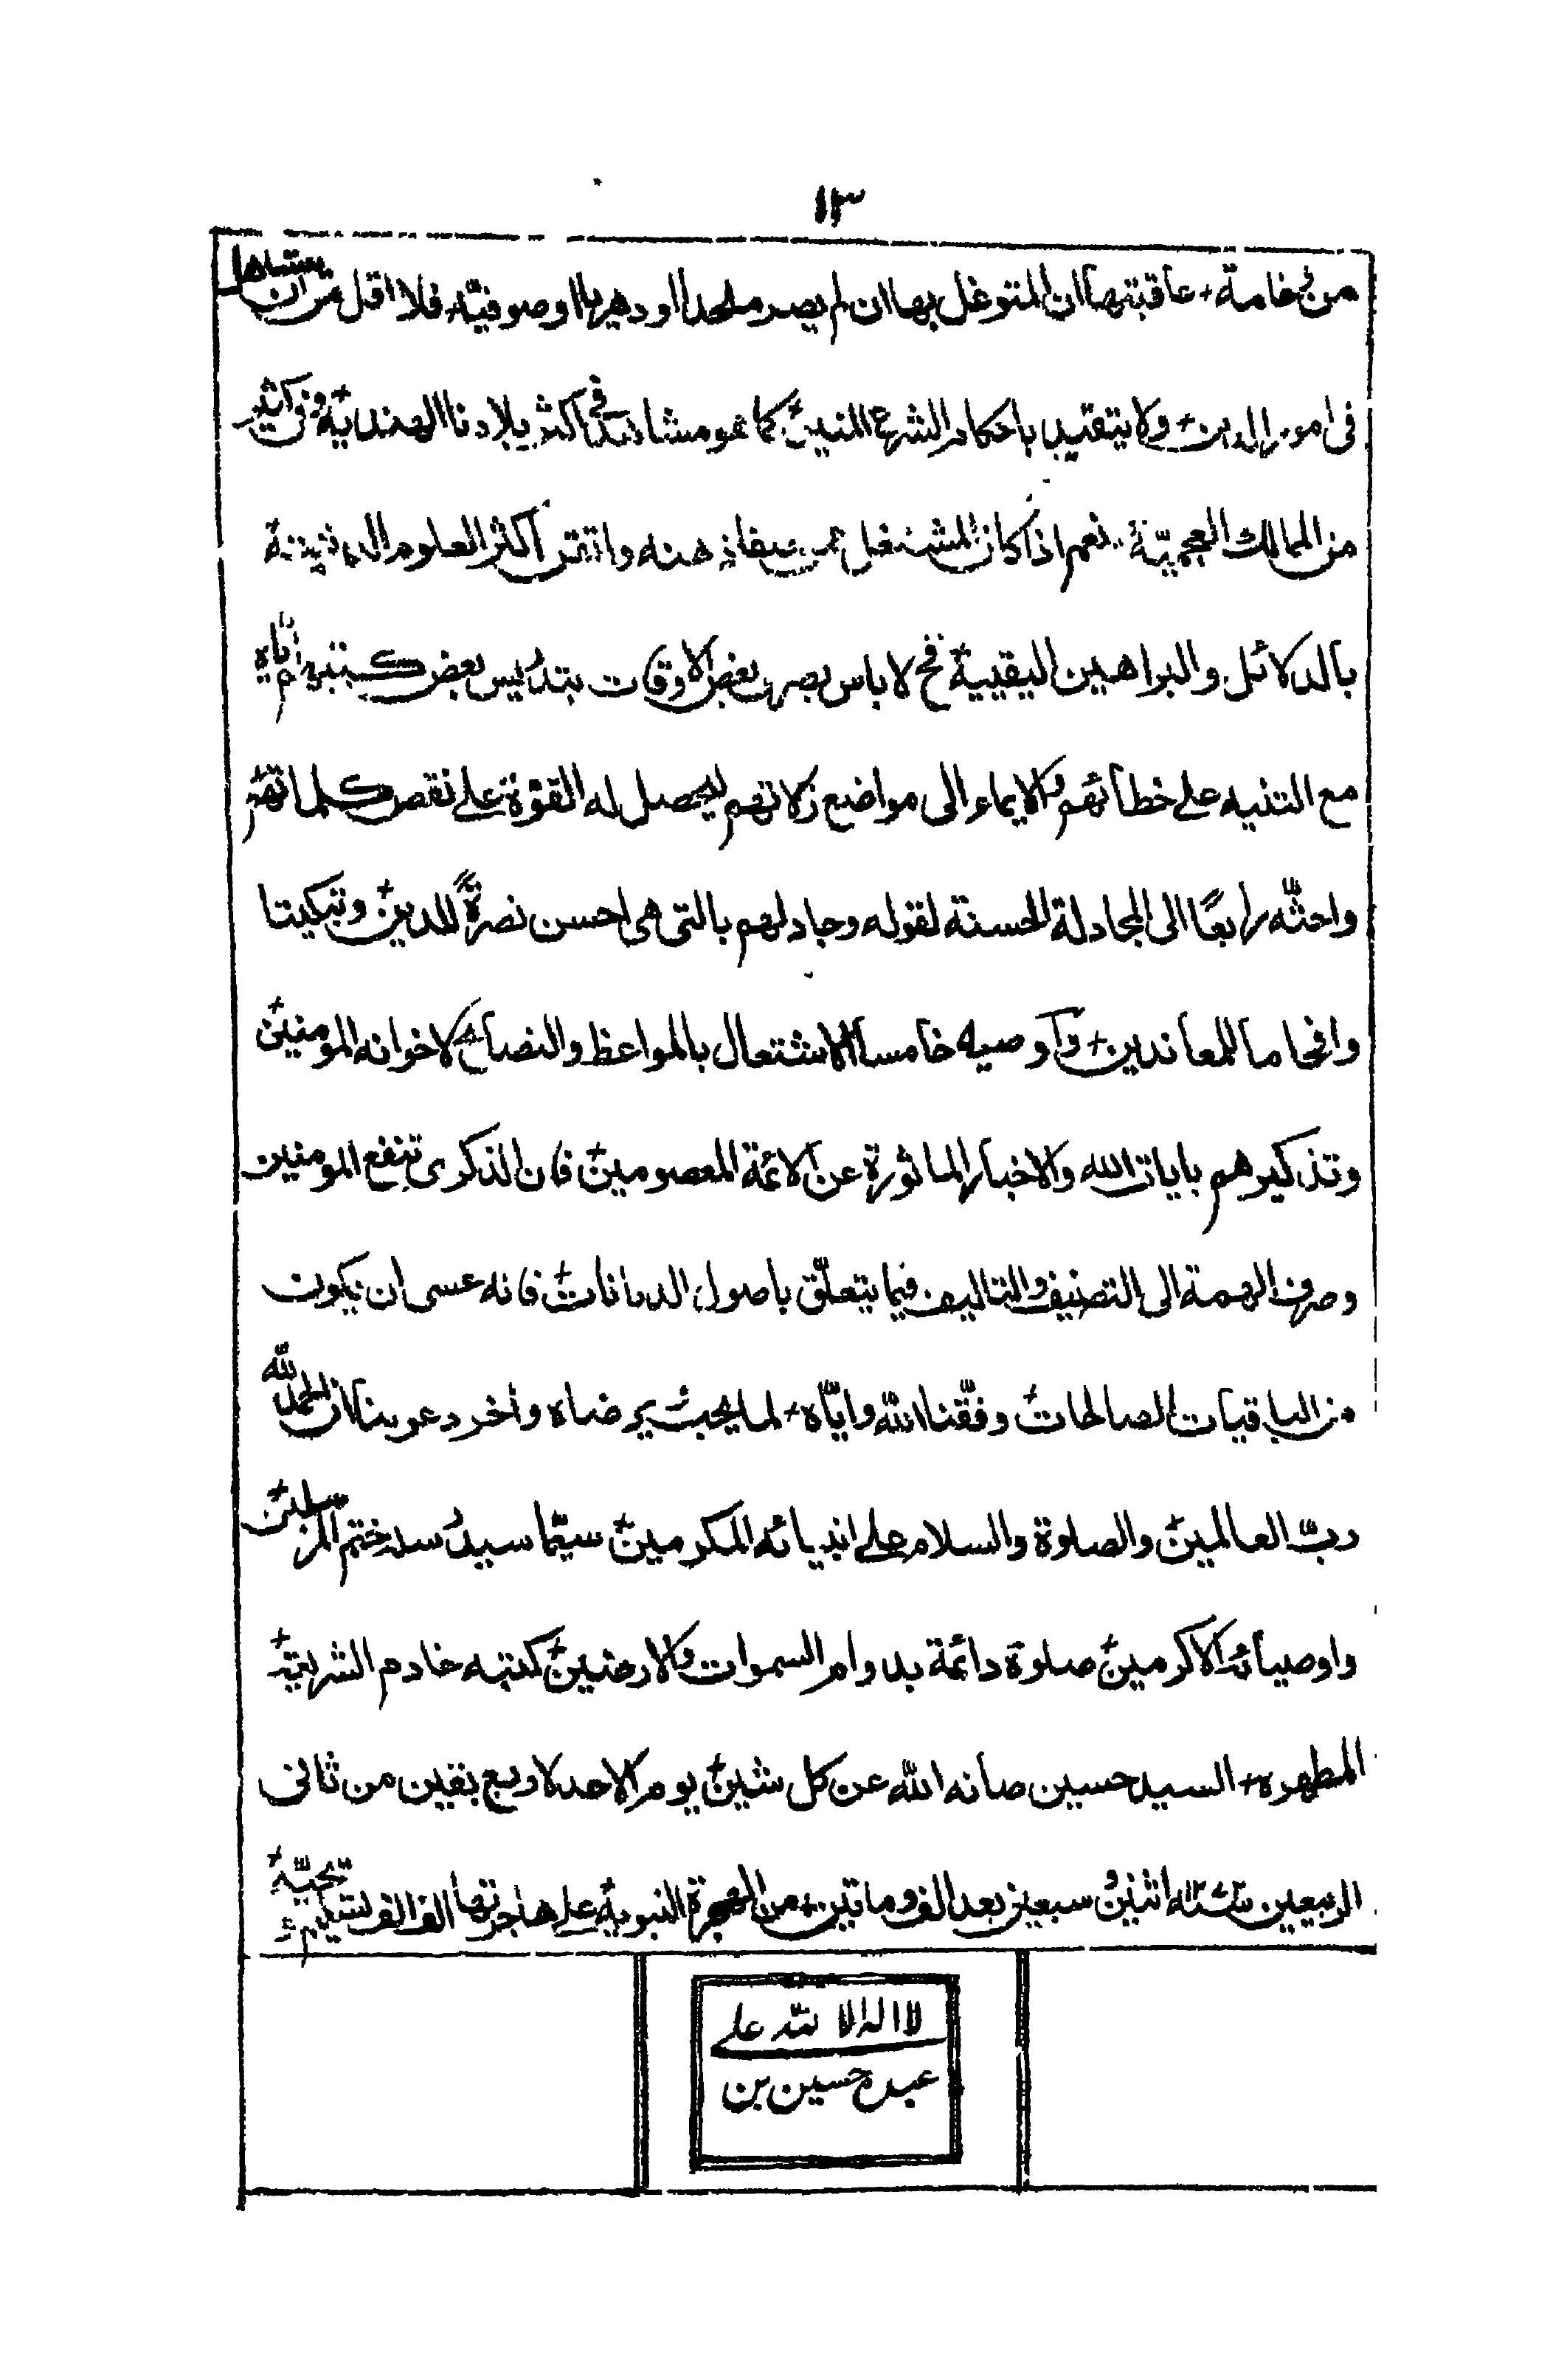 ١٣
من وخامة عاقبتها ان المتوغل بها ان لم يصر ملحدا او دهريا او صوفيّه فلا اقل من ان يتساهل
فى امور الدين ولا يتقيد باحكام الشرع المنين كما هو مشاهد فى اكثر بلادنا الهندية وفى كثير
من الممالك العجميّة نعم اذا كان المشتغل ممن ذهنه واتقن اكثر العلوم الدينية
بالدلائل والبراهين اليقينية فح لا باس بصرف بعض الاوقات بتدريس بعض كتبهم اياه
مع التنبيه على خطائهم والايماء الى مواضع زلاتهم ليحصل له القوة على نقص كلماتهم
واحثّه رابعًا الى المجادلة الحسنة لقوله وجادلهم بالتى هى احسن نصرةً للدين وتبكيتا
وافحاما للمعاندين واوصيه خامسا الاشتعال بالمواعظ والنصائح لاخوانه المومنين
وتذكيرهم بايات الله والاخبار الماثورة عن الائمة المعصومين فان الذكرى تنفع المومنين
وصرف الهمة الى التصنيف والتاليف فيما يتعلّق باصول الديانات فانه عسى ان يكون
من الباقيات الصالحات وفّقنا الله وايّاه لما يحب يرضاه وأخر دعوىنا ان الحمد لله
ربّ العالمين والصلوة والسلام على انبيائه المكرمين سيّما سيد ختم المرسلين
واوصيائه الاكرمين صلوة دائمة بدوام السموات والارضين كتبه خادم الشريعة
المطهرة السيد حسين صانه الله عن كل شين يوم الاحد لاربع بقين من ثانى
الربيعين اثنين وسبعين بعد الف وماتين من الهجرة النبوية على هاجرتها الف الف تسليم وتحيّة
لا اله الا الله على
عبده حسين بن